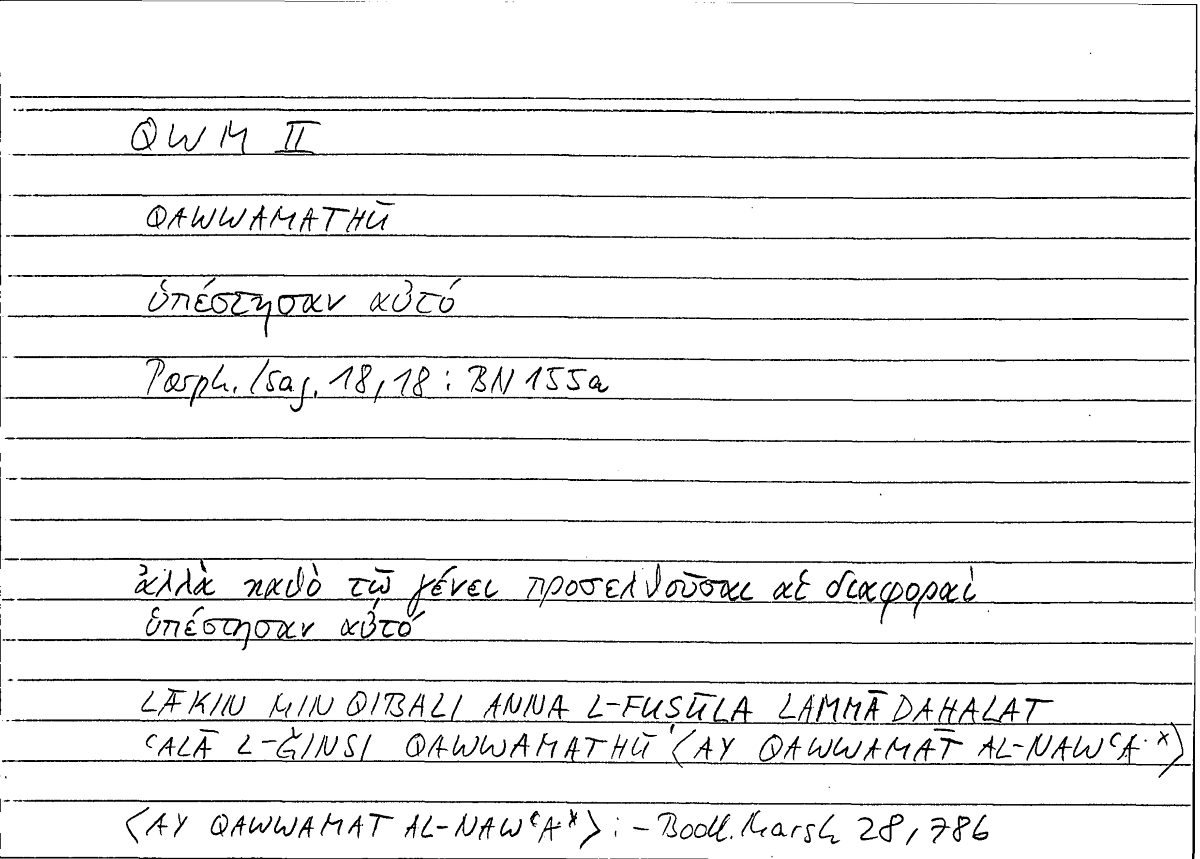 QWM II
QAWWAMATHŪ
ὑπέστησαν αὐτό
Porph. Isag. 18,18 : BN 155a
ἀλλὰ καθὸ τῷ γένει προσελθοῦσαι αἱ διαφοραὶ
ὑπέστησαν αὐτό
LĀKIN MIN QIBALI ANNA L-FUṢŪLA LAMMĀ DAHALAT
ʿALĀ L-ǦINSI QAWWAMATHŪ ⟨AY QAWWAMAT̄ AL-NAWʿA ˣ⟩
⟨AY QAWWAMAT AL-NAWʿAˣ⟩ : - Bodl. Marsh 28, 786